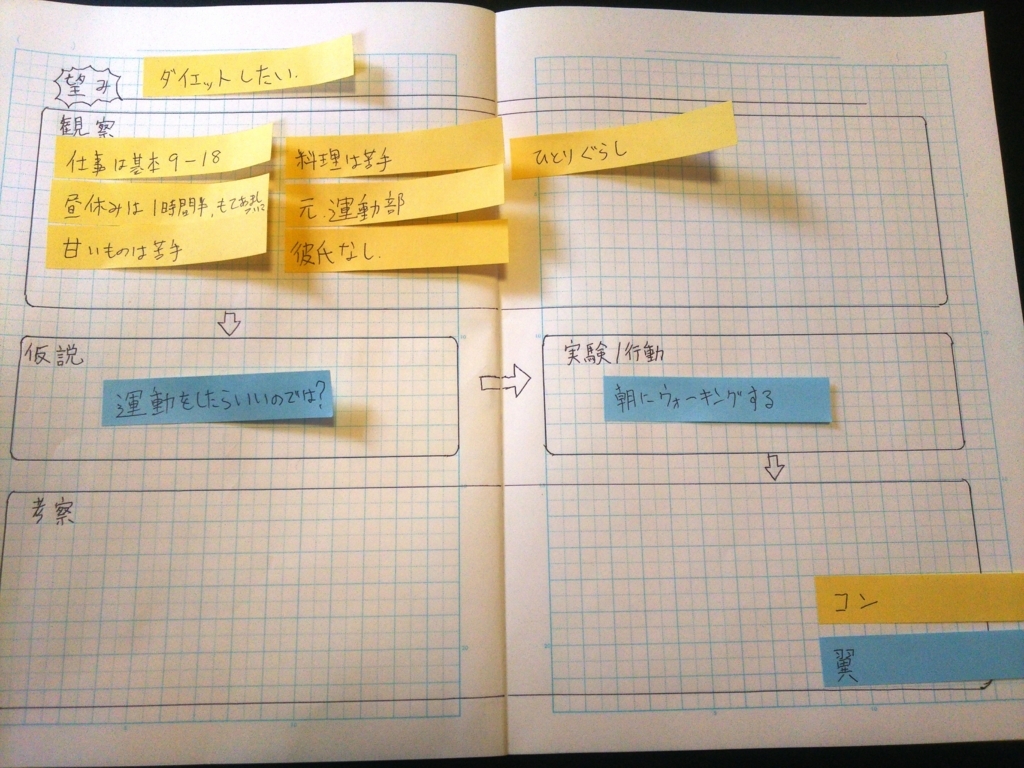 望み
ダイエットしたい.
観察
仕事は基本9-18
料理は苦手
ひとりぐらし
昼休みは1時間半,もてあまし
元.運動部
甘いものは苦手
彼氏なし.
仮説
運動をしたらいいのでは?
実験/行動
朝にウォーキングする
考察
コン
翼